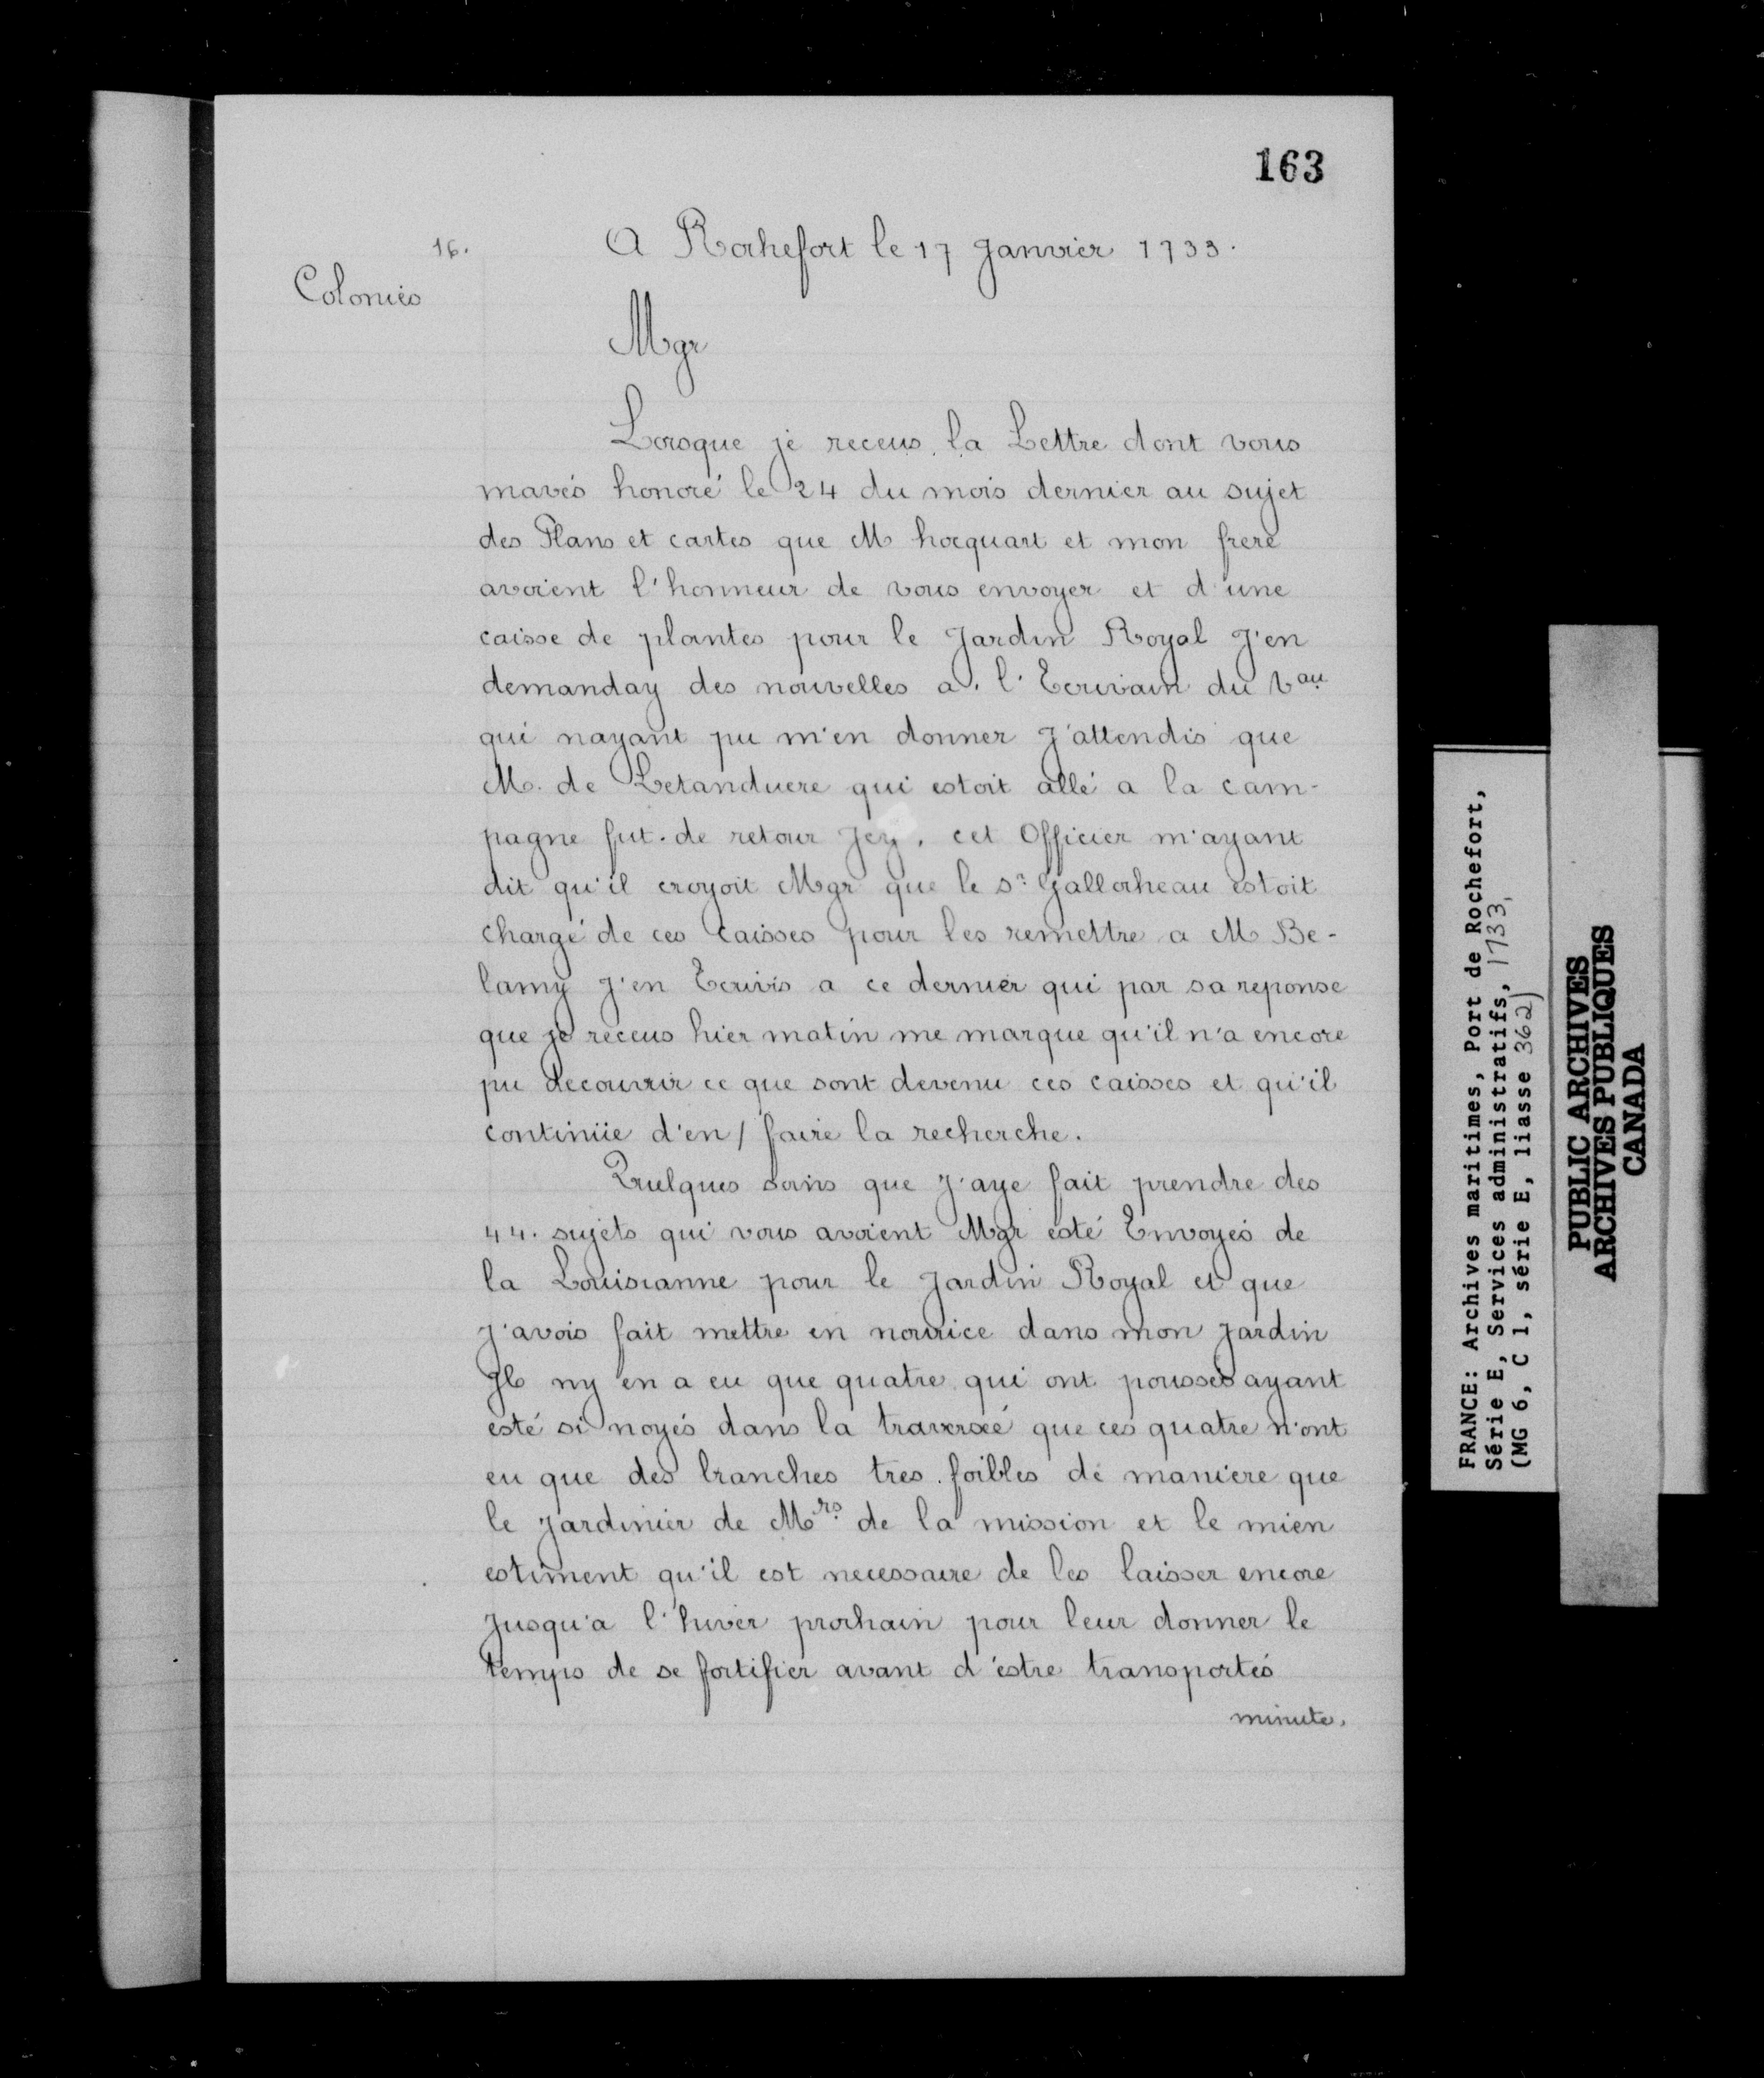 163
16.
A Rochefort le 17 Janvier 1733.
Colonies
Mgr
Lorsque je receus la Lettre dont vous
mavés honoré le 24 du mois dernier au sujet
des Plans et cartes que M hocquart et mon frere
avoient l'honneur de vous envoyer et d'une
caisse de plantes pour le Jardin Royal J'en
demanday des nouvelles a l'Ecrivain du Vau
qui nayant pu m'en donner J'attendis que
M. de Letanduere qui estoit allé a la cam-
pagne fut de retour Jcy, cet Officier m'ayant
dit qu'il croyoit Mgr que le Sr Gallocheau estoit
chargé de ces Caisses pour les remettre a M Be-
lamy J'en Ecrivis a ce dernier qui par sa reponse
que je receus hier matin me marque qu'il n'a encore
pu decouvrir ce que sont devenu ces caisses et qu'il
continüe d'en / faire la recherche.
Quelques soins que J'aye fait prendre des
44. sujets qui vous avoient Mgr esté Envoyés de
la Louisianne pour le Jardin Royal et que
J'avois fait mettre en nourice dans mon Jardin
Jl ny en a eu que quatre qui ont poussés ayant
esté si noyés dans la traversée que ces quatre n'ont
eu que des branches tres foibles de maniere que
le Jardinier de Mrs de la mission et le mien
estiment qu'il est necessaire de les laisser encore
Jusqu'a l'hiver prochain pour leur donner le
temps de se fortifier avant d'estre transportés
minute.
FRANCE: Archives maritimes, Port de Rochefort,
Série E, Services administratifs, 1733,
(MG 6, C 1, série E, liasse 362)
PUBLIC ARCHIVES
ARCHIVES PUBLIQUES
CANADA